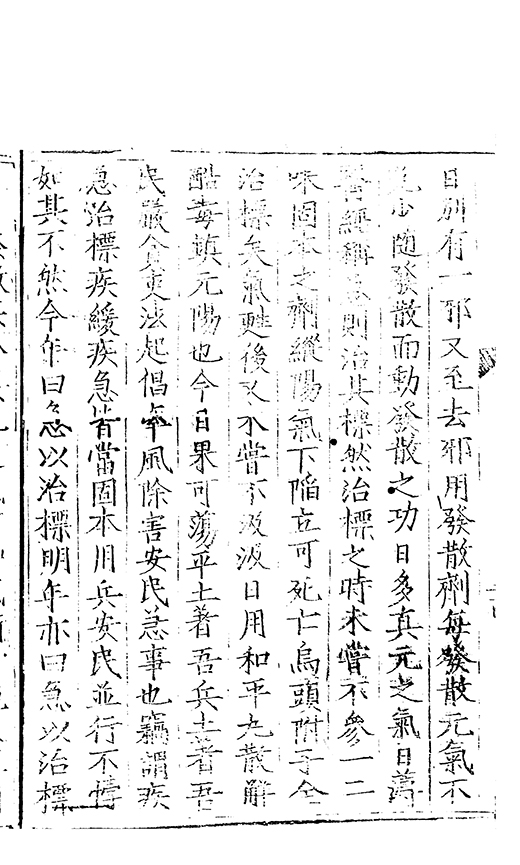 日別有一邪又至去邪用發散劑每發散元氣不
隨發散而動發散之功日多真元之氣日
醫經稱急則治其標然治標之時未嘗不參一二
味固本之劑縱陽氣下陷立可死亡烏頭附子全
治標矣氣甦後又未嘗不汲汲日用和平丸散解
酷毒鎮元陽也今日果可蕩平土著吾兵去者吾
民嚴貪吏法起倡率風除害安民急事也竊謂疾
急治標疾緩疾急皆當固本用兵安民並行不
如其不然今年曰急以治標明年亦曰急以治標